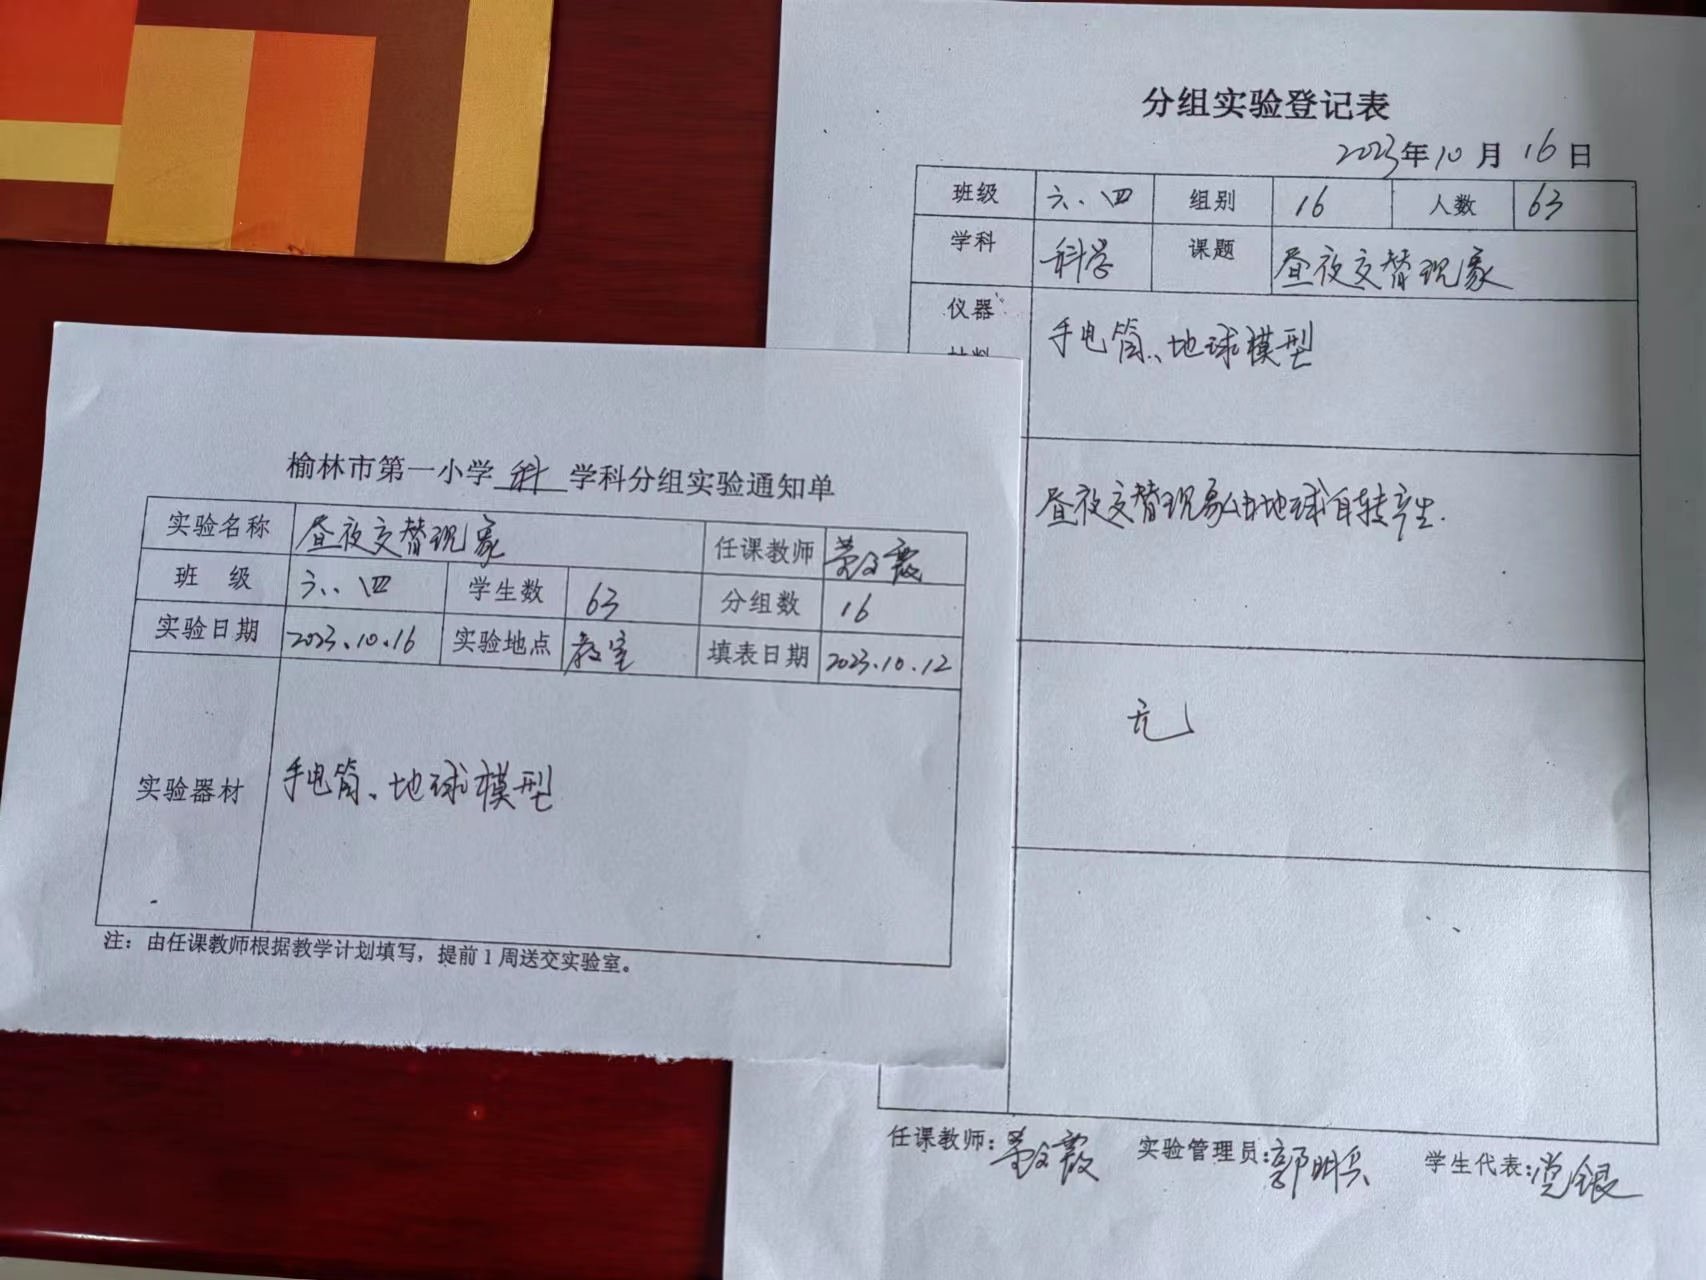 榆林市第一小学 科 学科分组实验通知单
实验名称 昼夜交替现象 任课教师
班 级 六、四 学生数 63 分组数 16
实验日期 2023.10.16 实验地点 教室 填表日期 2023.10.12
实验器材 手电筒、地球模型
注：由任课教师根据教学计划填写，提前1周送交实验室。
分组实验登记表
2023年10月16日
班级 六、四 组别 16 人数 63
学科 科学 课题 昼夜交替现象
仪器 手电筒、地球模型
昼夜交替现象由地球自转产生.
无
任课教师: 实验管理员: 郭明兵 学生代表: